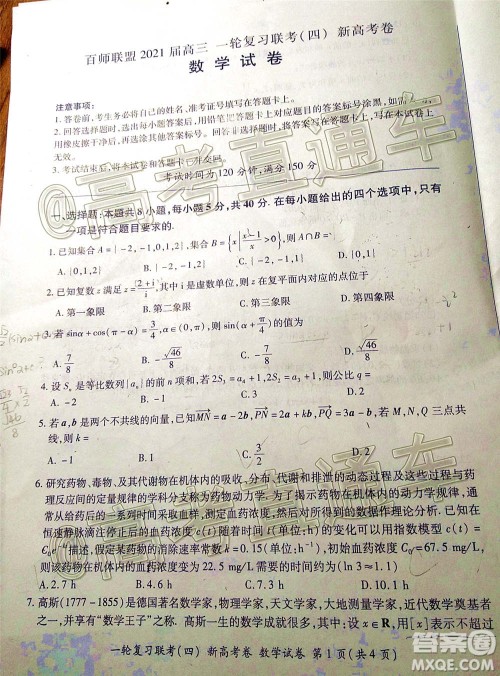 百师联盟 2021 届高三 一轮复习联考(四) 新高考卷
数学试卷
注意事项:
1. 答卷前,考生务必将自己的姓名、准考证号填写在答题卡上。
2. 回答选择题时,选出每小题答案后,用铅笔把答题卡上对应题目的答案标号涂黑,如需改动,
用橡皮擦干净后,再选涂其他答案标号。回答非选择题时,将答案写在答题卡上,写在本试卷上
无效。
3. 考试结束后,将本试卷和答题卡一并交回。
考试时间为120分钟,满分150分
@高考直通车
一、选择题:本题共8小题,每小题5分,共40分。在每小题给出的四个选项中,只有
一项是符合题目要求的.
1. 已知集合A={-2,-1,0,1,2},集合B={x|(x-1)/x>0},则A∩B=
A. {0,1,2} B. {-2,-1,0} C. {-2,-1,2} D. {-2,2}
2. 已知复数z满足z=|2+i|/i,其中i是虚数单位,则z在复平面内对应的点位于
A. 第一象限 B. 第二象限 C. 第三象限 D. 第四象限
3. 若sinα+cos(π-α)=3/4,α∈(0,π),则sin(π/4-α)的值为
A. 7/8 B. -√46/8 C. √46/8 D. -7/8
4. 设Sₙ是等比数列{aₙ}的前n项和,若2S₃=a₄+1,2S₂=a₃+1,则公比q=
A. -3 B. -1 C. 1 D. 3
5. 若a,b是两个不共线的向量,已知MN=a-2b,PN=2a+kb,PQ=3a-b,若M,N,Q三点共
线,则k=
A. -1 B. 1 C. 3/2 D. 2
6. 研究药物、毒物、及其代谢物在机体内的吸收、分布、代谢和排泄的动态过程及这些过程与药
理反应间的定量规律的学科分支称为药物动力学.药物在机体内的动力学规律,通
常从给药后的一系列时间采取血样,测定血药浓度,然后对所得的数据作理论分析.已知在
恒速静脉滴注停止后的血药浓度c(t)随时间t(单位:h)的变化可以用指数模型c(t)=
C₀e⁻ᵏᵗ描述,假定某药物的消除速率常数k=0.15(单位:h⁻¹),
则该药物在机体内的血药浓度变为22.5 mg/L需要的时间约为(ln3≈1.1)
A. 2.7 h B. 4.2 h C. 7.3 h D. 10.1 h
7. 高斯(1777-1855)是德国著名数学家,物理学家,天文学家,大地测量学家,近代数学奠基者
之一,并享有“数学王子”之称.高斯一生成就极为丰硕,设x∈R,用[x]表示不超
一轮复习联考(四) 新高考卷 数学试卷 第1页(共4页)
@高考直通车
作业帮
www.mkaq.com